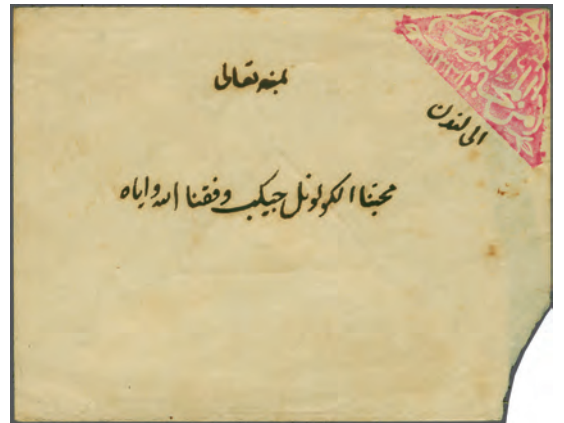 بمنه تعالى
الى لندن
محبنا الكولونل جيكب وفقنا الله واياه